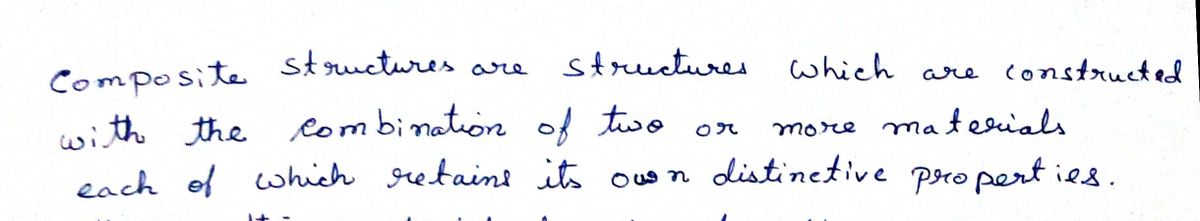 Composite structures are structures which are constructed
with the combination of two or more materials
each of which retains its own distinctive properties.